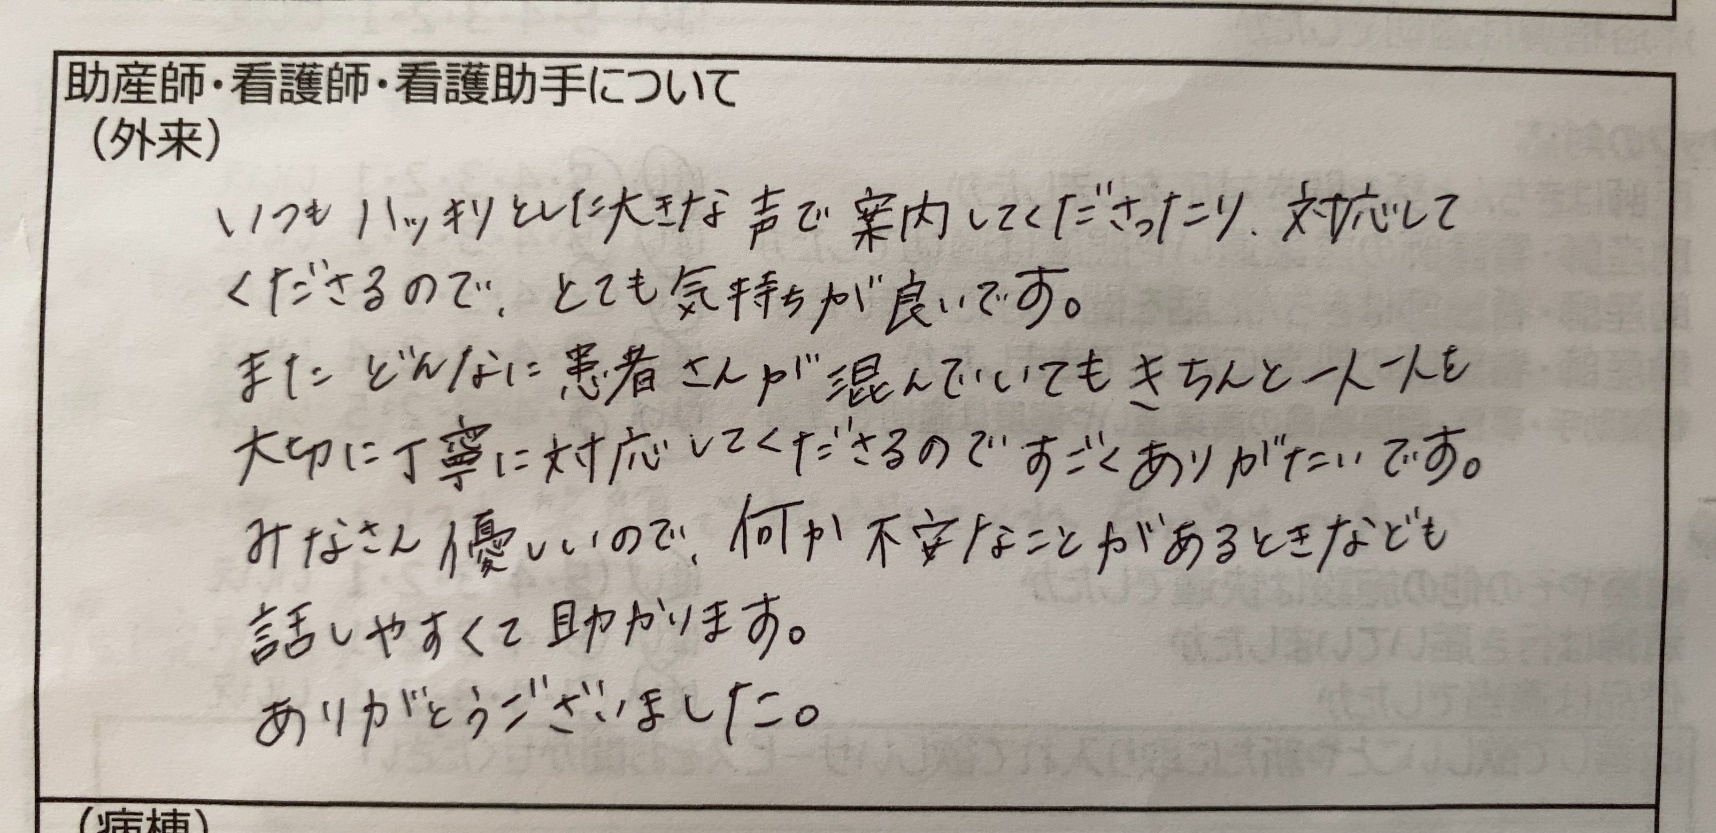 助産師・看護師・看護助手について
（外来）
いつもハッキリとした大きな声で案内してくださったり、対応して
くださるので、とても気持ちが良いです。
またどんなに患者さんが混んでいてもきちんと一人一人を
大切に丁寧に対応してくださるのですごくありがたいです。
みなさん優しいので、何か不安なことがあるときなども
話しやすくて助かります。
ありがとうございました。
（病棟）